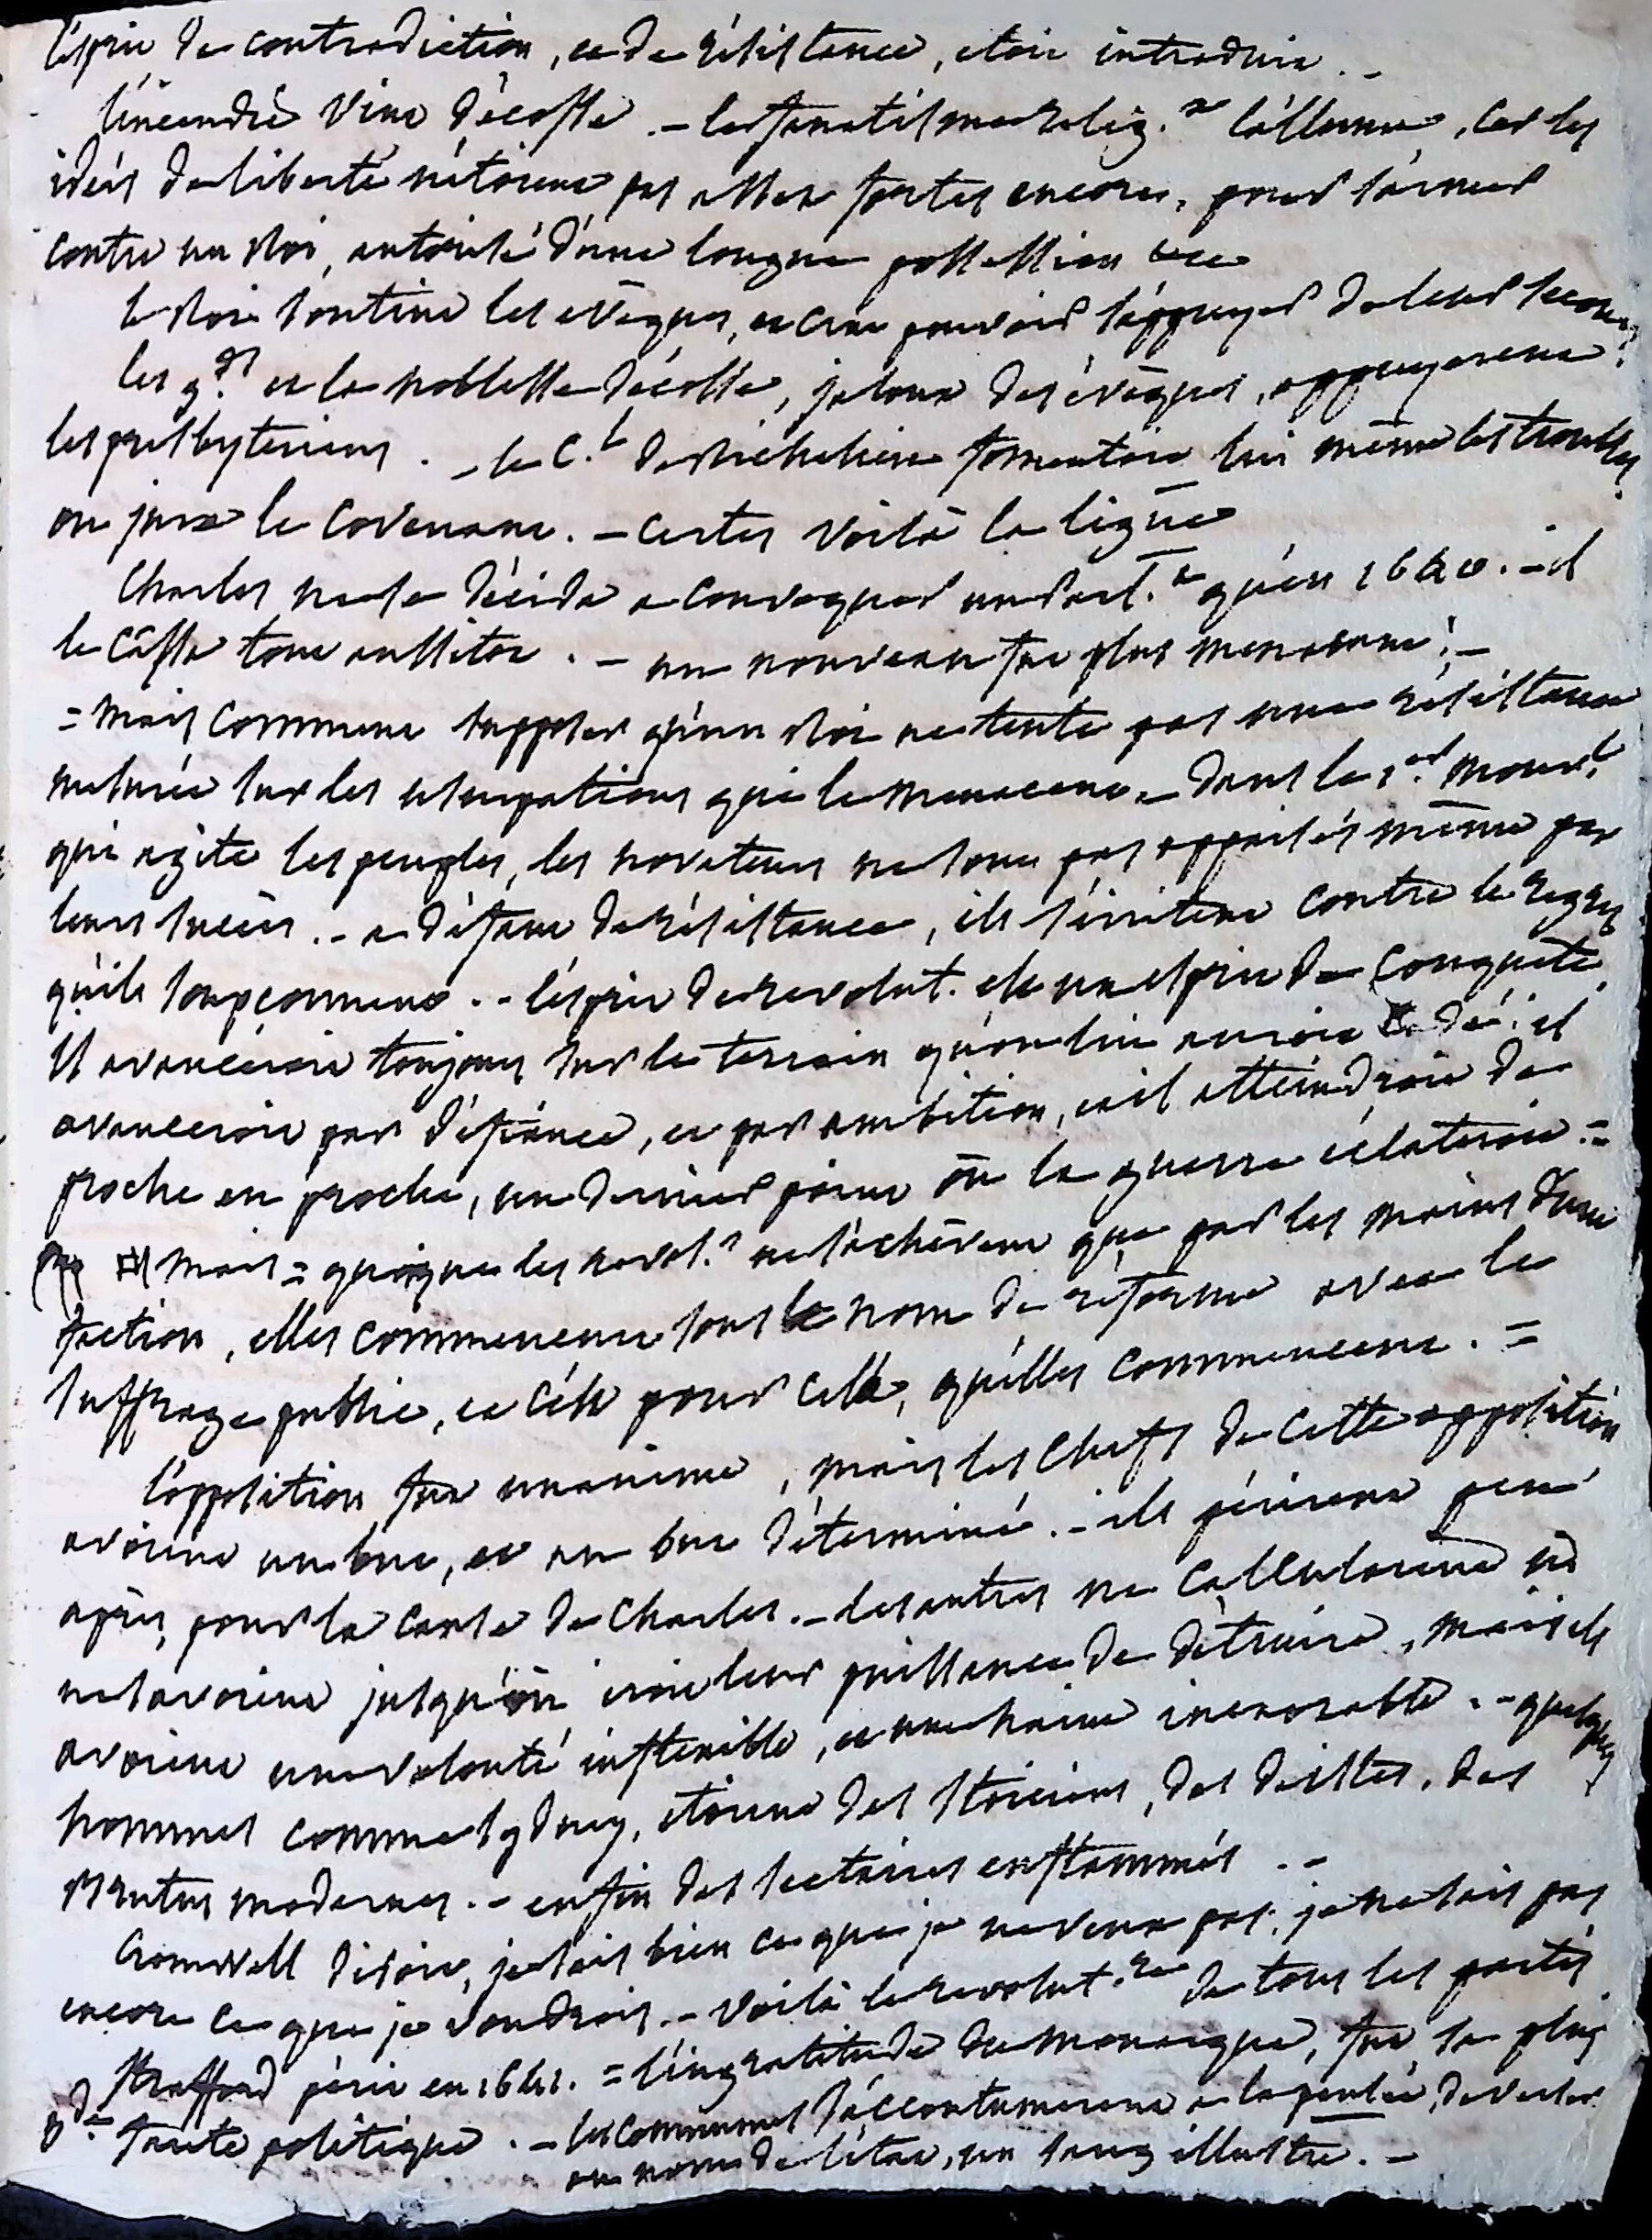 l'esprit de contradiction, et de résistance, etoit introduit. -
l'incendie vint d'écosse. - le fanatisme relig.x l'alluma, car les
idées de liberté n'étoient pas assez fortes encore, pour s'armer
contre un Roi, autorisé d'une longue possession
le Roi soutint les evêques, et crut pouvoir s'appuyer de leur secours
les g.ds et la noblesse d'écosse, jaloux des évêques, appuyerent
les presbyteriens. - le C.l de Richelieu fomentoit lui même les troubles,
on jura le Covenant. - certes voilà la ligue
Charles ne se décida a convoquer un parl.t qu'en 1640. - il
le cassa tout aussitôt. - un nouveau fut plus menacant. -
= mais comment supposer qu'un Roi ne tente pas une résistance
mesurée sur les usurpations qui le menacent. - dans le 1.er mouv.t
qui agite les peuples, les novateurs ne sont pas appaisés même par
leurs succès. - a défaut de résistance, ils s'irritent contre le regret
qu'ils soupconnent. - l'esprit de revolut. est un esprit de conquête.
il avanceroit toujours sur le terrain qu'on lui auroit cédé. il
avanceroit par défiance, et par ambition, et il atteindroit de
proche en proche, un dernier point où la guerre éclateroit. =
mais = quoique les revol.s ne s'achèvent que par les mains d'une
faction, elles commencent sous le nom de réforme avec le
suffrage public, et c'est pour cela, qu'elles commencent. =
l'opposition fut unanime, mais les chefs de cette opposition
avoient un but, et un but déterminé. - ils périrent peu
après, pour la cause de Charles. - les autres ne calculoient ni
ne savoient jusqu'où iroit leur puissance de détruire, mais ils
avoient une volonté inflexible, et une haine inexorable. - quelques
hommes comme Sydney, etoient des stoïciens, des deistes, des
Brutus modernes. - enfin des sectaires enflammés. -
Cromwell disoit, je sais bien ce que je ne veux pas, je ne sais pas
encore ce que je voudrois. - voilà le revolut.re de tous les partis
Strafford périt en 1641. = l'ingratitude du monarque, fut sa plus
g.de faute politique. - les communes s'accoutumerent a la pensée, de verser
au nom de l'état, un sang illustre. -